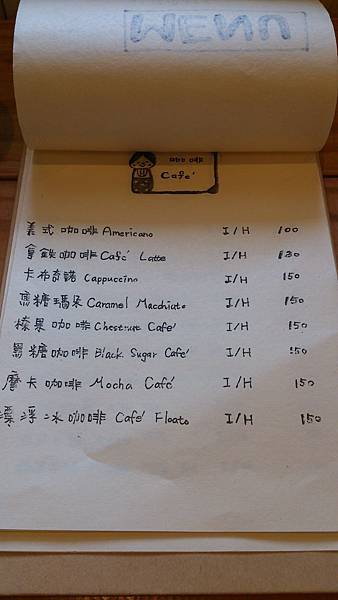 MENU
咖啡
Café
美式咖啡 Americano I/H 100
拿鐵咖啡 Café Latte I/H 130
卡布奇諾 Cappuccino I/H 150
焦糖瑪朵 Caramel Macchiato I/H 150
榛果咖啡 Chestnut Café I/H 150
黑糖咖啡 Black Sugar Café I/H 150
摩卡咖啡 Mocha Café I/H 150
漂浮冰咖啡 Café Floato I/H 150